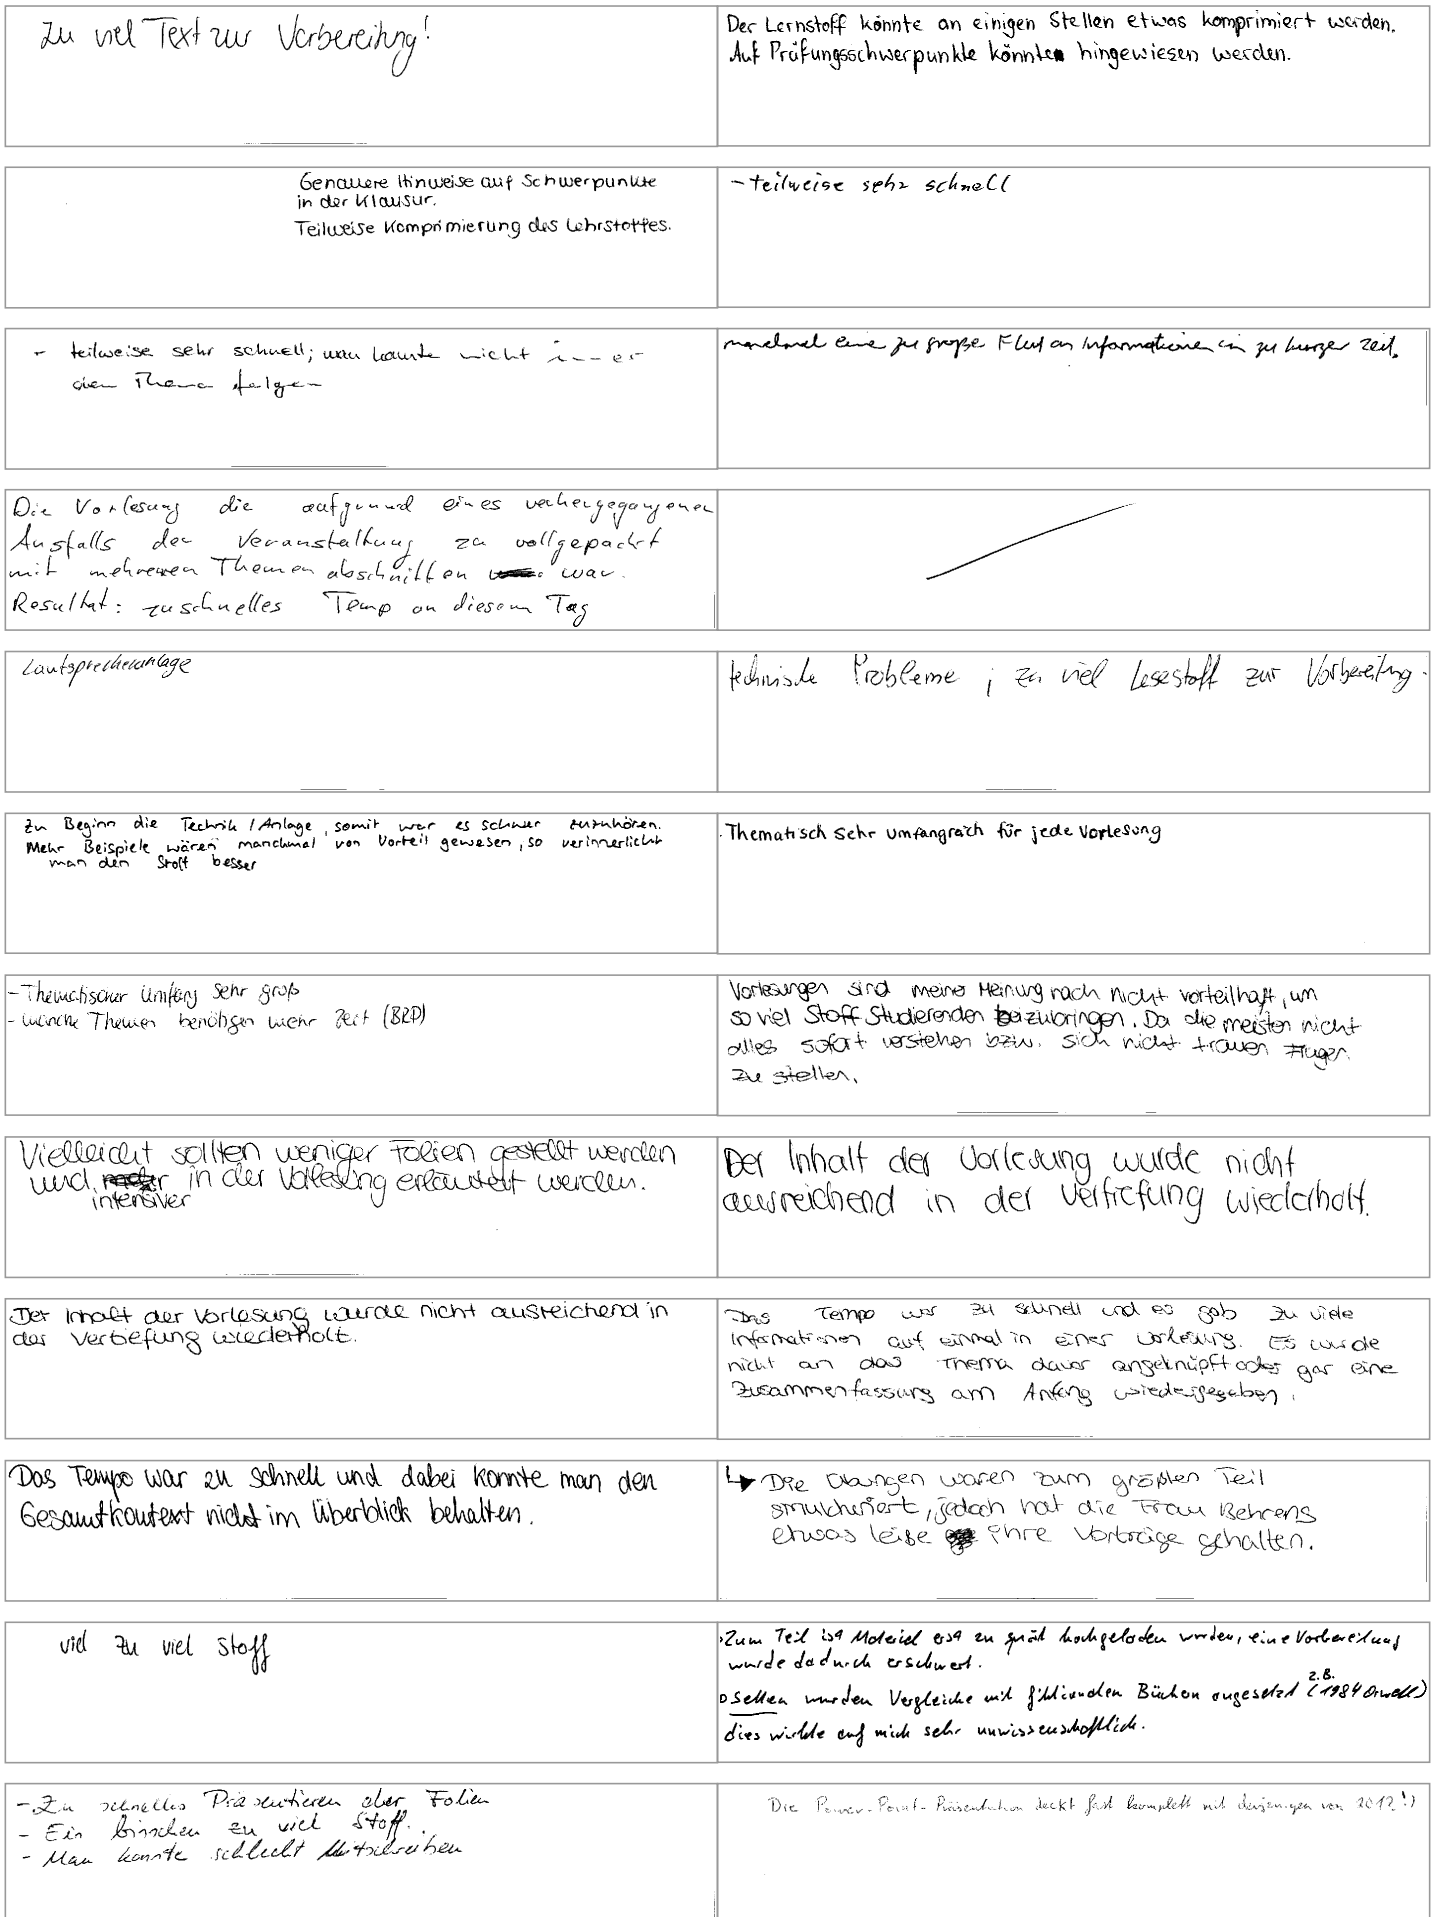 Zu viel Text zur Vorbereitung!
Der Lernstoff könnte an einigen Stellen etwas komprimiert werden.
Auf Prüfungsschwerpunkte könnte hingewiesen werden.
Genauere Hinweise auf Schwerpunkte
in der Klausur.
Teilweise Komprimierung des Lehrstoffes.
- teilweise sehr schnell
- teilweise sehr schnell; man konnte nicht immer
dem Thema folgen
manchmal eine zu große Flut an Informationen in zu kurzer Zeit.
Die Vorlesung die aufgrund eines vorhergegangenen
Ausfalls der Veranstaltung zu vollgepackt
mit mehreren Themenabschnitten war.
Resultat: zu schnelles Temp an diesem Tag
Lautsprecheranlage
technische Probleme ; zu viel Lesestoff zur Vorbereitung.
Zu Beginn die Technik / Anlage, somit war es schwer zuzuhören.
Mehr Beispiele wären manchmal von Vorteil gewesen, so verinnerlicht
man den Stoff besser
Thematisch sehr umfangreich für jede Vorlesung
- Thematischer Umfang sehr groß
- manche Themen benötigen mehr Zeit (BRD)
Vorlesungen sind meiner Meinung nach nicht vorteilhaft, um
so viel Stoff Studierenden beizubringen. Da die meisten nicht
alles sofort verstehen bzw. sich nicht trauen Fragen
zu stellen.
Vielleicht sollten weniger Folien gestellt werden
und intensiver in der Vorlesung erläutert werden.
Der Inhalt der Vorlesung wurde nicht
ausreichend in der Vertiefung wiederholt.
Der Inhalt der Vorlesung wurde nicht ausreichend in
der Vertiefung wiederholt.
Das Tempo war zu schnell und es gab zu viele
Informationen auf einmal in einer Vorlesung. Es wurde
nicht an das Thema davor angeknüpft oder gar eine
Zusammenfassung am Anfang wiedergegeben.
Das Tempo war zu schnell und dabei konnte man den
Gesamtkontext nicht im Überblick behalten.
↳ Die Übungen waren zum größten Teil
strukturiert, jedoch hat die Frau Behrens
etwas leise ihre Vorträge gehalten.
viel zu viel Stoff
Zum Teil ist Material erst zu spät hochgeladen worden, eine Vorbereitung
wurde dadurch erschwert.
Selten wurden Vergleiche mit fiktionalen Büchern angesetzt (z.B. 1984 Orwell)
dies wirkte auf mich sehr unwissenschaftlich.
- Zu schnelles Präsentieren der Folien
- Ein bisschen zu viel Stoff.
- Man konnte schlecht Mitschreiben
Die Power-Point-Präsentation deckt fast komplett mit derjenigen von 2012!)